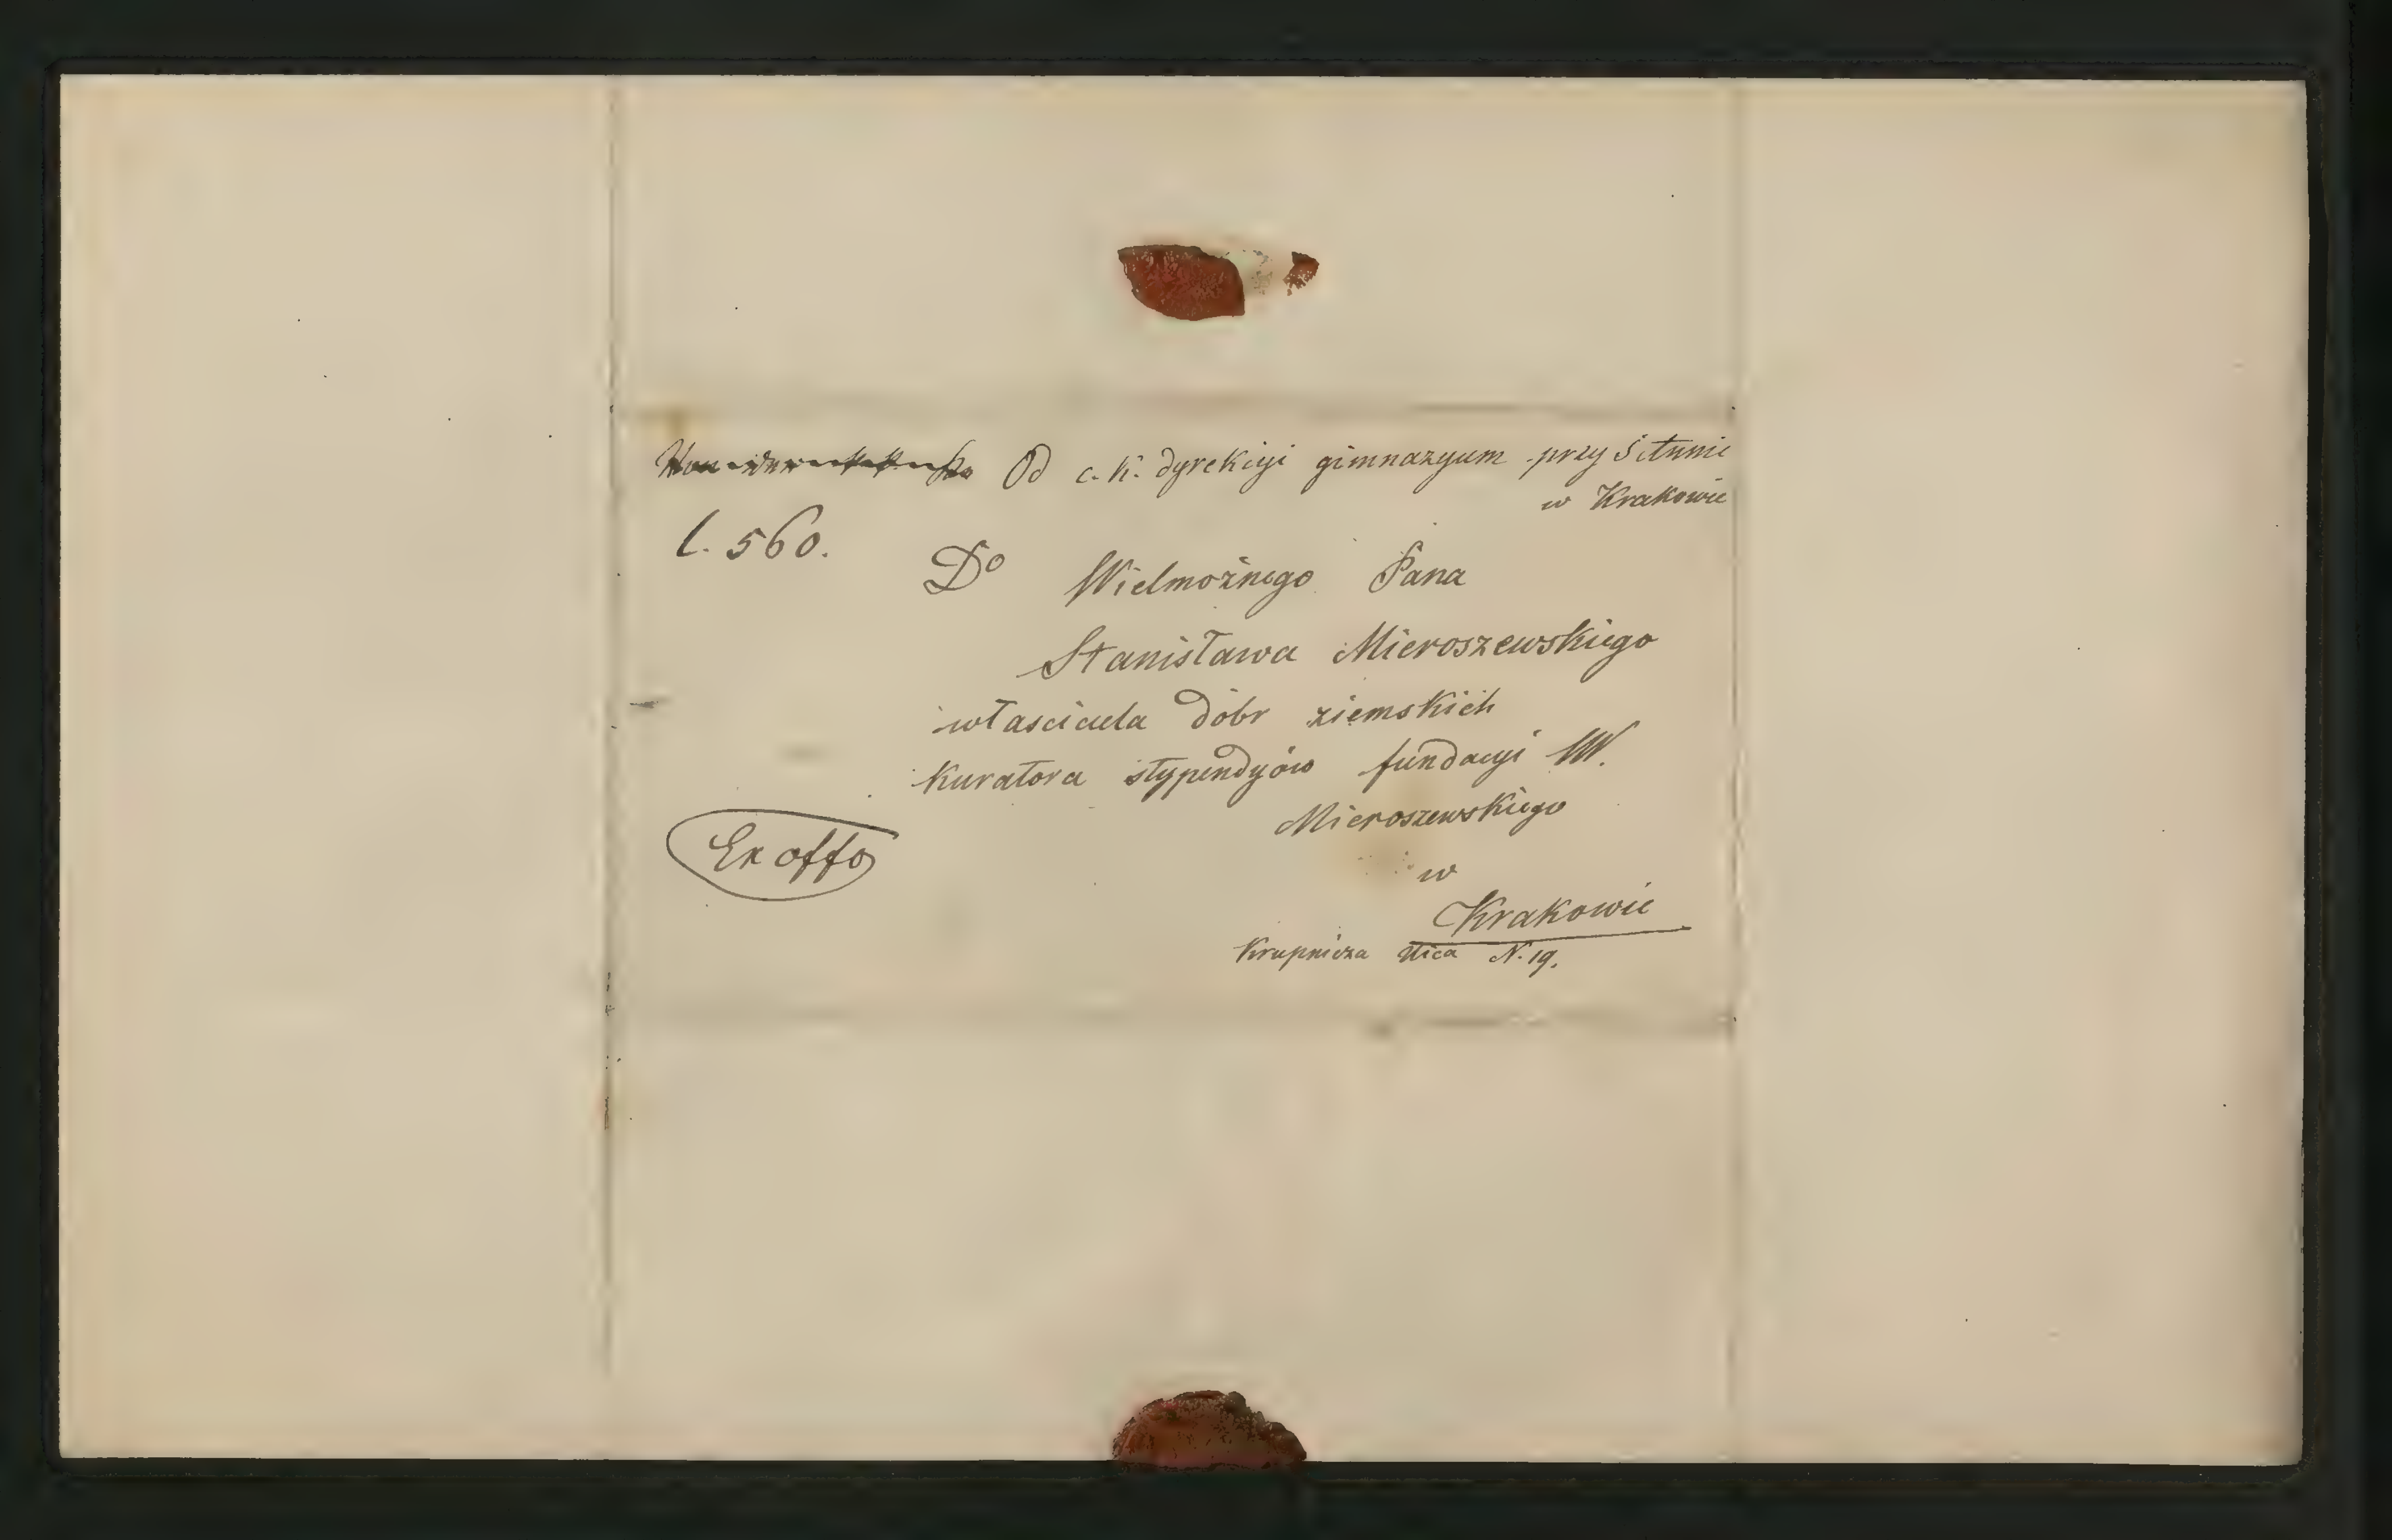 Od c. k. dyrekcyi gimnazyum przy S. Annie
w Krakowie
L. 560.
Do Wielmożnego Pana
Stanisława Mieroszewskiego
właściciela dóbr ziemskich
Kuratora stypendyów fundacyi W.
Mieroszewskiego
Ex offo
w
Krakowie
Krupnicza Ulica N. 19.